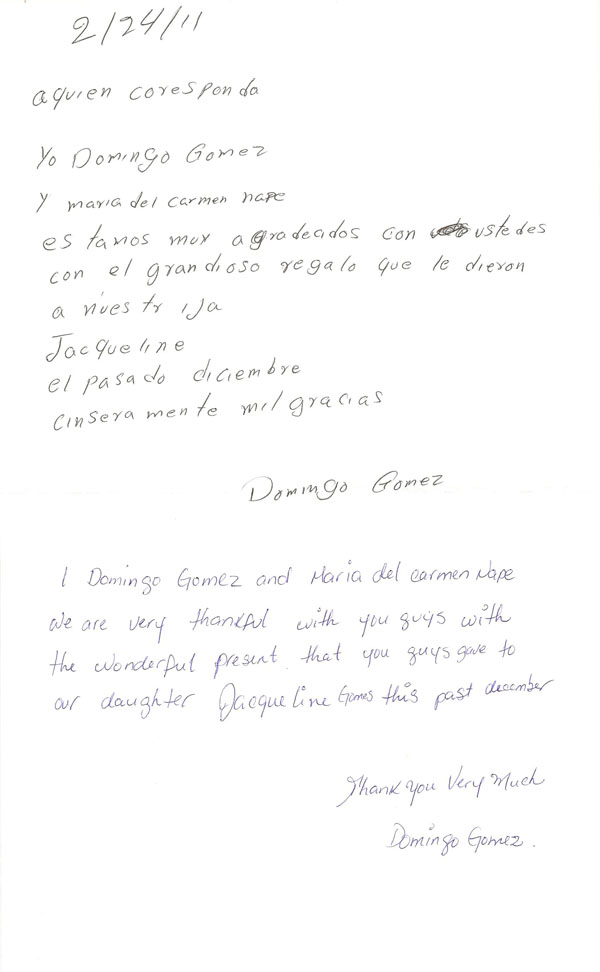 2/24/11
a quien coresponda
Yo Domingo Gomez
Y maria del carmen nape
es tamos muy agradecidos con ustedes
con el grandioso regalo que le dieron
a nuestr ija
Jacqueline
el pasado diciembre
cinseramente mil gracias
Domingo Gomez
I Domingo Gomez and Maria del carmen Nape
We are very thankful with you guys with
the wonderful present that you guys gave to
our daughter Jacqueline Gomes this past december
Thank you Very Much
Domingo Gomez.